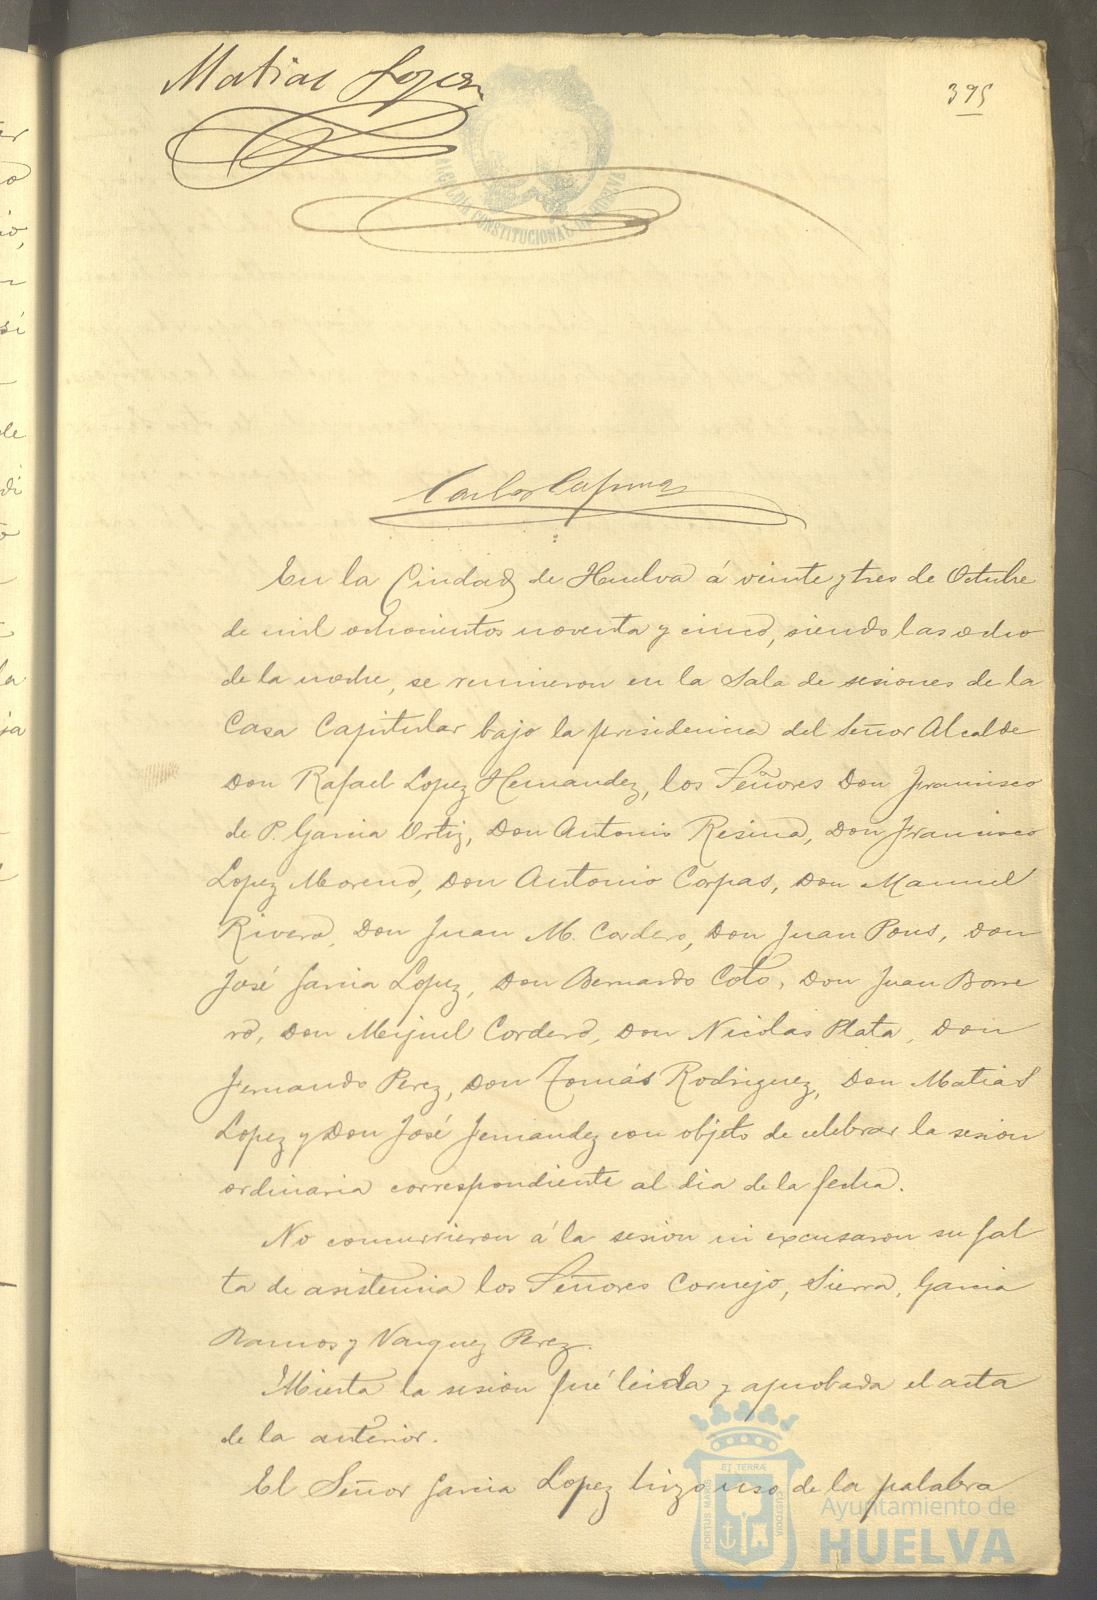 Matias Lopez
395
ALCALDIA CONSTITUCIONAL DE HUELVA
Carlos
En la Ciudad de Huelva á veinte y tres de Octubre
de mil ochocientos noventa y cinco, siendo las ocho
de la noche, se reunieron en la Sala de sesiones de la
Casa Capitular bajo la presidencia del Señor Alcalde
Don Rafael Lopez Hernandez, los Señores Don Francisco
de P. Garcia Ortiz, Don Antonio Resina, Don Francisco
Lopez Moreno, Don Antonio Corpas, Don Manuel
Rivera, Don Juan M. Cordero, Don Juan Pons, Don
José Garcia Lopez, Don Bernardo Coto, Don Juan Borre
ro, Don Miguel Cordero, Don Nicolas Plata, Don
Fernando Perez, Don Tomás Rodriguez, Don Matias
Lopez y Don José Fernandez con objeto de celebrar la sesion
ordinaria correspondiente al dia de la fecha.
No concurrieron á la sesion ni excusaron su fal
ta de asistencia los Señores Cornejo, Sierra, Garcia
Ramos y Vazquez Perez.
Abierta la sesion fué leida y aprobada el acta
de la anterior.
El Señor Garcia Lopez hizo uso de la palabra
ET TERRÆ
PORTUS MARIS
CUSTODIA
Ayuntamiento de
HUELVA